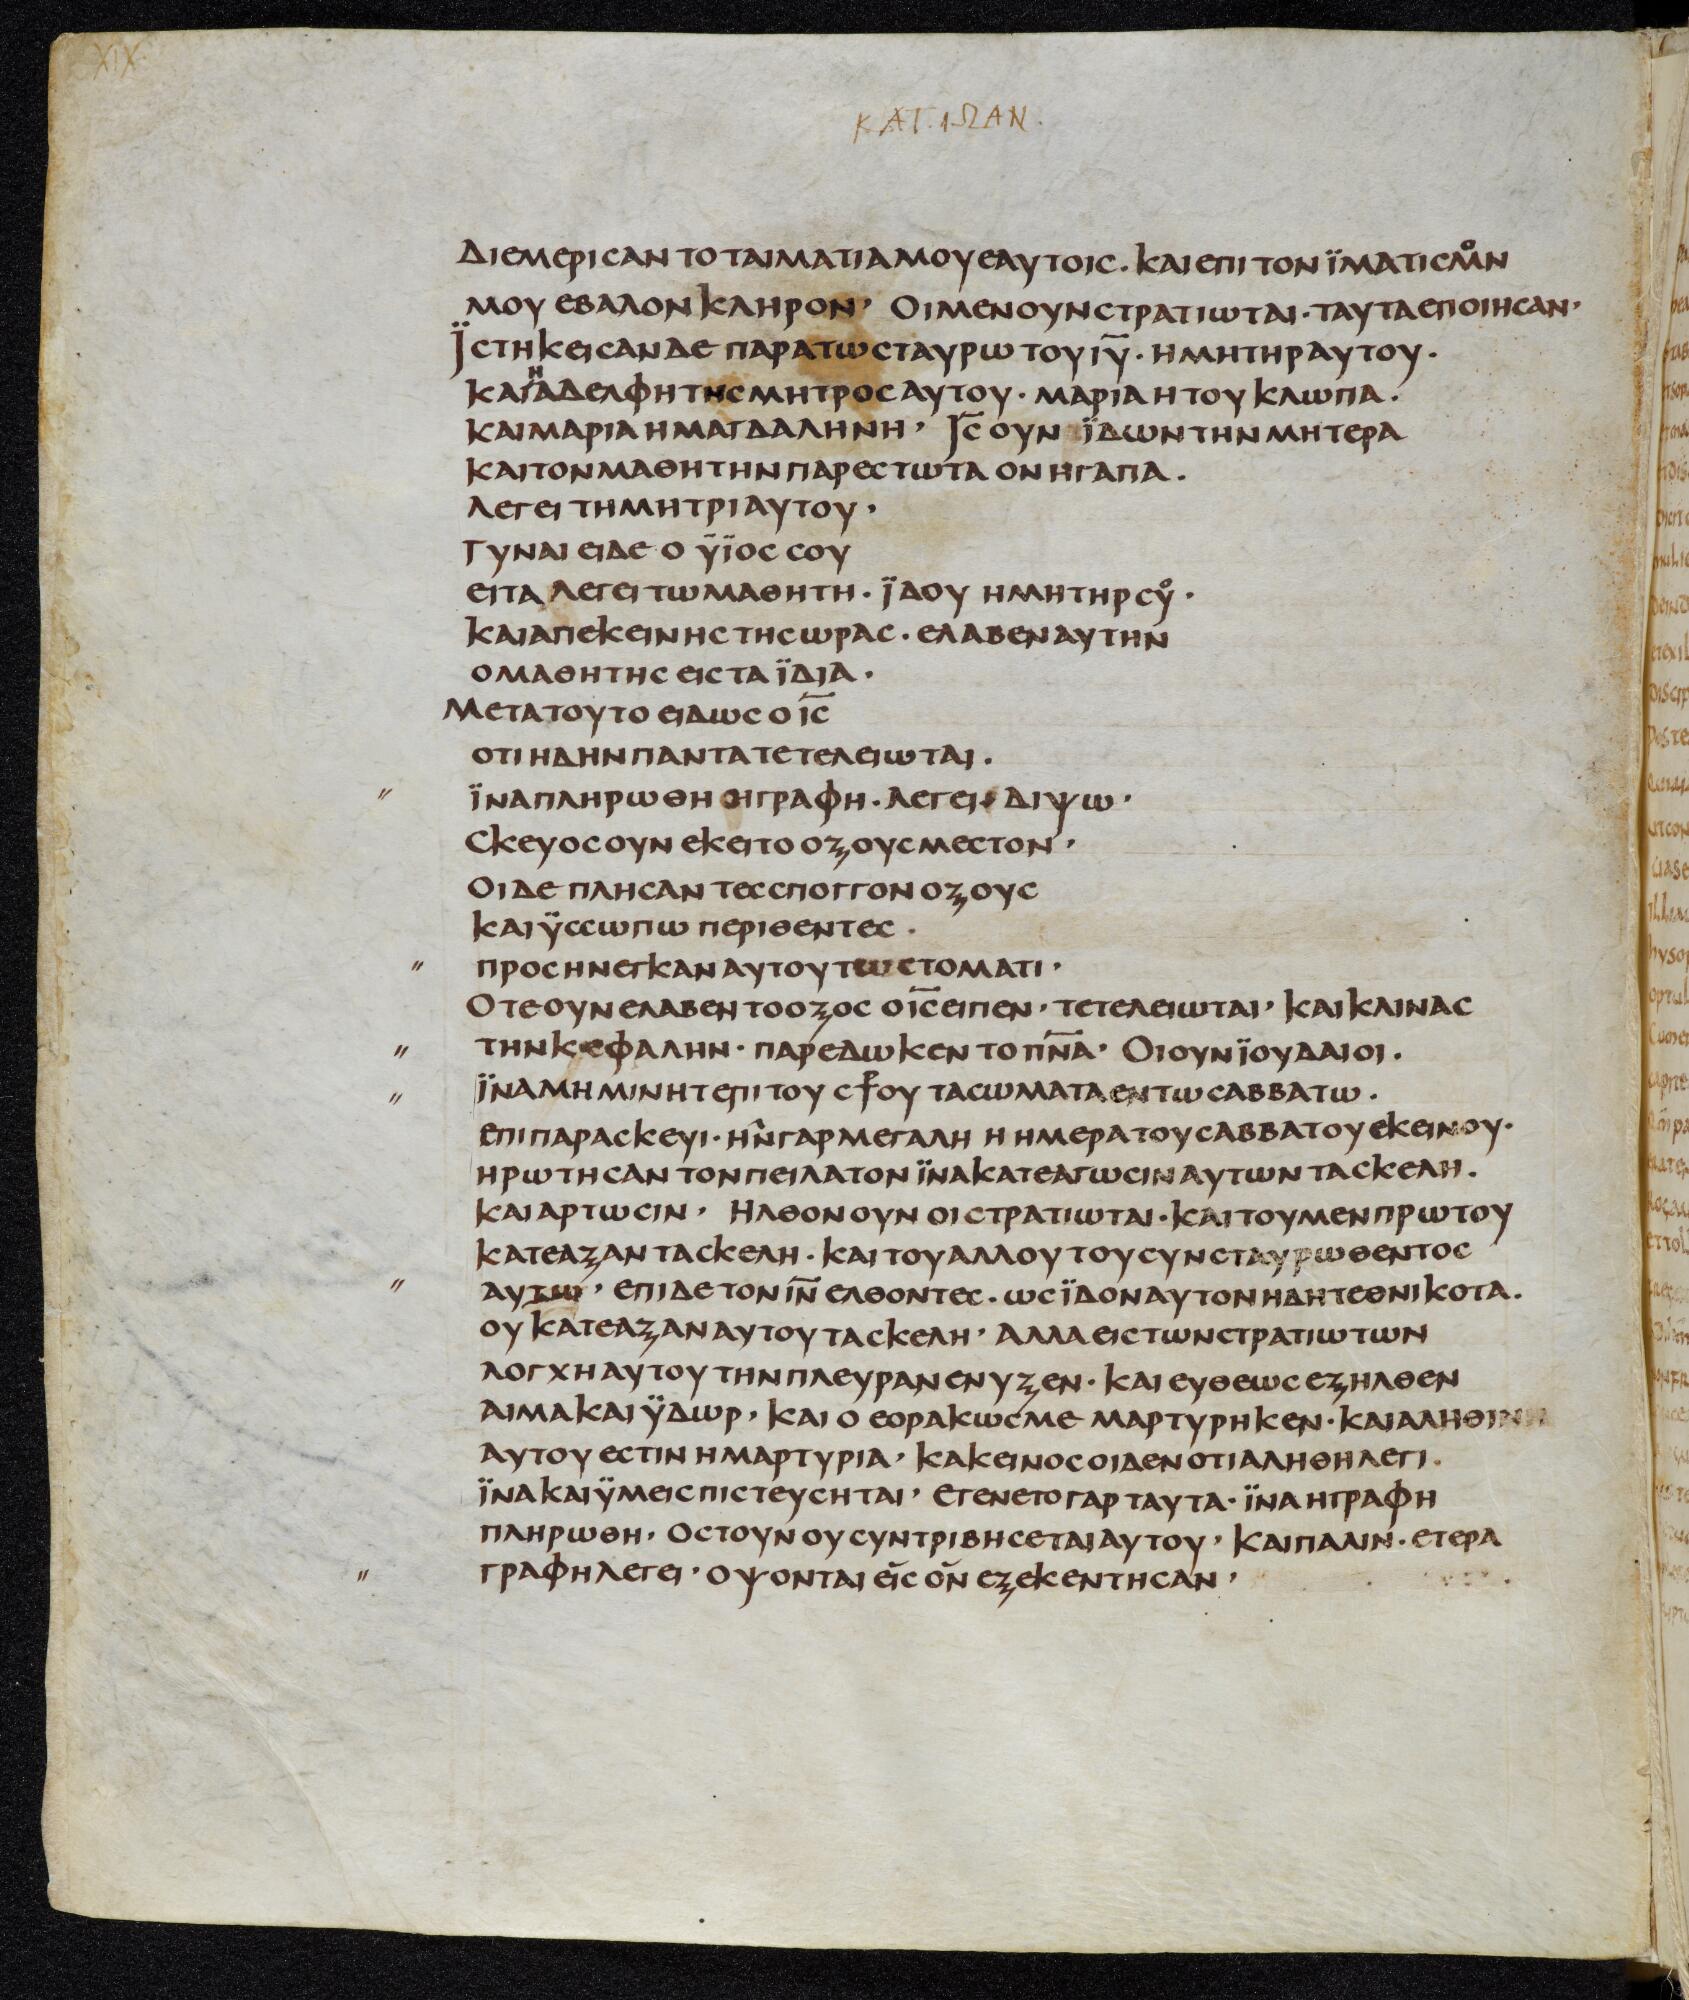 XIX
ΚΑΤ. ΙΩΑΝ.
ΔΙΕΜΕΡΙCΑΝΤΟΤΑΙΜΑΤΙΑΜΟΥΕΑΥΤΟΙC·ΚΑΙΕΠΙΤΟΝΪΜΑΤΙCΜΟΝ
ΜΟΥΕΒΑΛΟΝΚΛΗΡΟΝ· ΟΙΜΕΝΟΥΝCΤΡΑΤΙΩΤΑΙ·ΤΑΥΤΑΕΠΟΙΗCΑΝ·
ΪCΤΗΚΕΙCΑΝΔΕΠΑΡΑΤΩCΤΑΥΡΩΤΟΥΙ̅Υ̅·ΗΜΗΤΗΡΑΥΤΟΥ·
ΚΑΙΗΑΔΕΛΦΗΤΗCΜΗΤΡΟCΑΥΤΟΥ·ΜΑΡΙΑΗΤΟΥΚΛΩΠΑ·
ΚΑΙΜΑΡΙΑΗΜΑΓΔΑΛΗΝΗ· Ι̅C̅ΟΥΝ ΪΔΩΝΤΗΝΜΗΤΕΡΑ
ΚΑΙΤΟΝΜΑΘΗΤΗΝΠΑΡΕCΤΩΤΑΟΝΗΓΑΠΑ·
ΛΕΓΕΙΤΗΜΗΤΡΙΑΥΤΟΥ·
ΓΥΝΑΙΕΙΔΕΟΫΪΟCCΟΥ
ΕΙΤΑΛΕΓΕΙΤΩΜΑΘΗΤΗ·ΪΔΟΥΗΜΗΤΗΡCΟΥ·
ΚΑΙΑΠΕΚΕΙΝΗCΤΗCΩΡΑC·ΕΛΑΒΕΝΑΥΤΗΝ
ΟΜΑΘΗΤΗCΕΙCΤΑΪΔΙΑ·
ΜΕΤΑΤΟΥΤΟΕΙΔΩCΟΙ̅C̅
ΟΤΙΗΔΗΝΠΑΝΤΑΤΕΤΕΛΕΙΩΤΑΙ·
〃 ΪΝΑΠΛΗΡΩΘΗ ΗΓΡΑΦΗ·ΛΕΓΕΙ·ΔΙΨΩ·
CΚΕΥΟCΟΥΝΕΚΕΙΤΟΟΞΟΥCΜΕCΤΟΝ·
ΟΙΔΕΠΛΗCΑΝΤΕCCΠΟΓΓΟΝΟΞΟΥC
ΚΑΙΫCCΩΠΩΠΕΡΙΘΕΝΤΕC·
〃 ΠΡΟCΗΝΕΓΚΑΝΑΥΤΟΥΤΩCΤΟΜΑΤΙ·
ΟΤΕΟΥΝΕΛΑΒΕΝΤΟΟΞΟCΟΙ̅C̅ΕΙΠΕΝ·ΤΕΤΕΛΕΙΩΤΑΙ·ΚΑΙΚΛΙΝΑC
〃 ΤΗΝΚΕΦΑΛΗΝ·ΠΑΡΕΔΩΚΕΝΤΟΠ̅Ν̅Α̅·ΟΙΟΥΝΪΟΥΔΑΙΟΙ·
〃 ΪΝΑΜΗΜΙΝΗΤΕΠΙΤΟΥC⳨ΟΥΤΑCΩΜΑΤΑΕΝΤΩCΑΒΒΑΤΩ·
ΕΠΙΠΑΡΑCΚΕΥΙ·ΗΝΓΑΡΜΕΓΑΛΗΗΗΜΕΡΑΤΟΥCΑΒΒΑΤΟΥΕΚΕΙΝΟΥ·
ΗΡΩΤΗCΑΝΤΟΝΠΕΙΛΑΤΟΝΪΝΑΚΑΤΕΑΓΩCΙΝΑΥΤΩΝΤΑCΚΕΛΗ·
ΚΑΙΑΡΤΩCΙΝ· ΗΛΘΟΝΟΥΝΟΙCΤΡΑΤΙΩΤΑΙ·ΚΑΙΤΟΥΜΕΝΠΡΩΤΟΥ
ΚΑΤΕΑΞΑΝΤΑCΚΕΛΗ·ΚΑΙΤΟΥΑΛΛΟΥΤΟΥCΥΝCΤΑΥΡΩΘΕΝΤΟC
〃 ΑΥΤΩ·ΕΠΙΔΕΤΟΝΙ̅Ν̅ΕΛΘΟΝΤΕC·ΩCΪΔΟΝΑΥΤΟΝΗΔΗΤΕΘΝΙΚΟΤΑ·
ΟΥΚΑΤΕΑΞΑΝΑΥΤΟΥΤΑCΚΕΛΗ·ΑΛΛΑΕΙCΤΩΝCΤΡΑΤΙΩΤΩΝ
ΛΟΓΧΗΑΥΤΟΥΤΗΝΠΛΕΥΡΑΝΕΝΥΞΕΝ·ΚΑΙΕΥΘΕΩCΕΞΗΛΘΕΝ
ΑΙΜΑΚΑΙΫΔΩΡ·ΚΑΙΟΕΟΡΑΚΩCΜΕΜΑΡΤΥΡΗΚΕΝ·ΚΑΙΑΛΗΘΙΝΗ
ΑΥΤΟΥΕCΤΙΝΗΜΑΡΤΥΡΙΑ·ΚΑΚΕΙΝΟCΟΙΔΕΝΟΤΙΑΛΗΘΗΛΕΓΙ·
ΪΝΑΚΑΙΫΜΕΙCΠΙCΤΕΥCΗΤΑΙ·ΕΓΕΝΕΤΟΓΑΡΤΑΥΤΑ·ΪΝΑΗΓΡΑΦΗ
ΠΛΗΡΩΘΗ·ΟCΤΟΥΝΟΥCΥΝΤΡΙΒΗCΕΤΑΙΑΥΤΟΥ·ΚΑΙΠΑΛΙΝ·ΕΤΕΡΑ
〃 ΓΡΑΦΗΛΕΓΕΙ·ΟΨΟΝΤΑΙΕΙCΟΝΕΞΕΚΕΝΤΗCΑΝ·